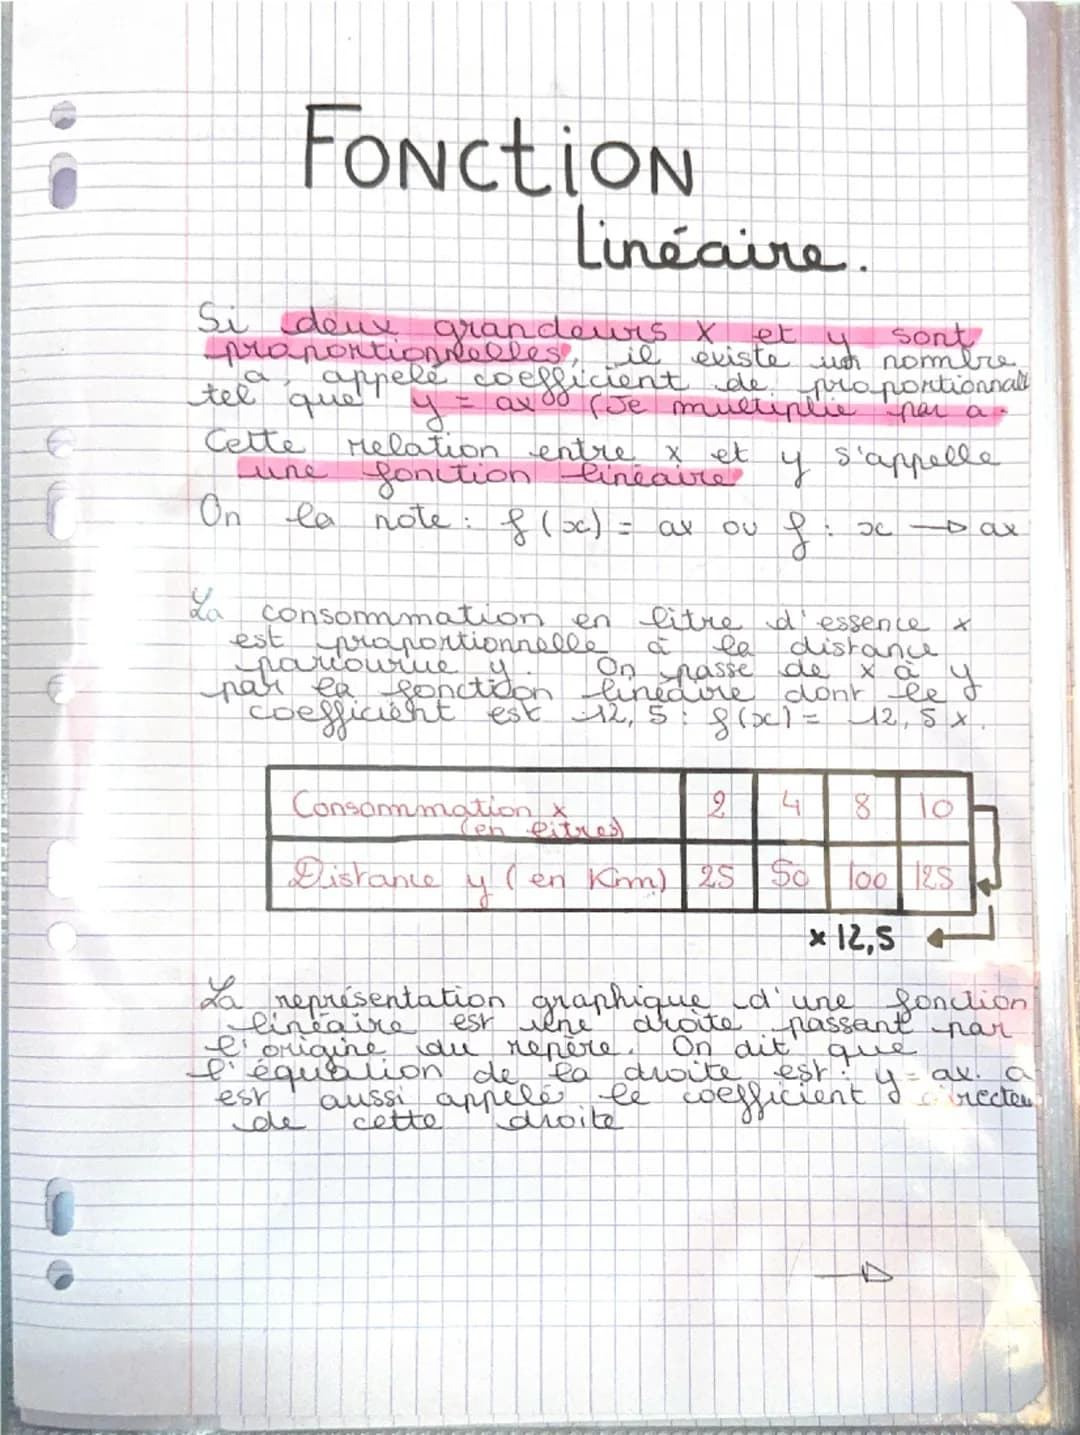 Fonction
Linéaire.
Si deux grandeurs x et y sont
proportionnelles, il existe un nombre
a, appelé coefficient de proportionnali
tel que y = ax (Je multiplie par a.
Cette relation entre x et y s'appelle
une fonction linéaire
On la note : f(x) = ax ou f : x → ax
La consommation en litre d'essence x
est proportionnelle à la distance
parcourue y. On passe de x à y
par la fonction linéaire dont le
coefficient est 12,5 : f(x) = 12,5 x.
Consommation x 2 4 8 10
(en litres)
Distance y (en Km) 25 50 100 125
x 12,5
La représentation graphique d'une fonction
linéaire est une droite passant par
l'origine du repère. On dit que
l'équation de la droite est : y = ax. a
est aussi appelé le coefficient directeu
de cette droite